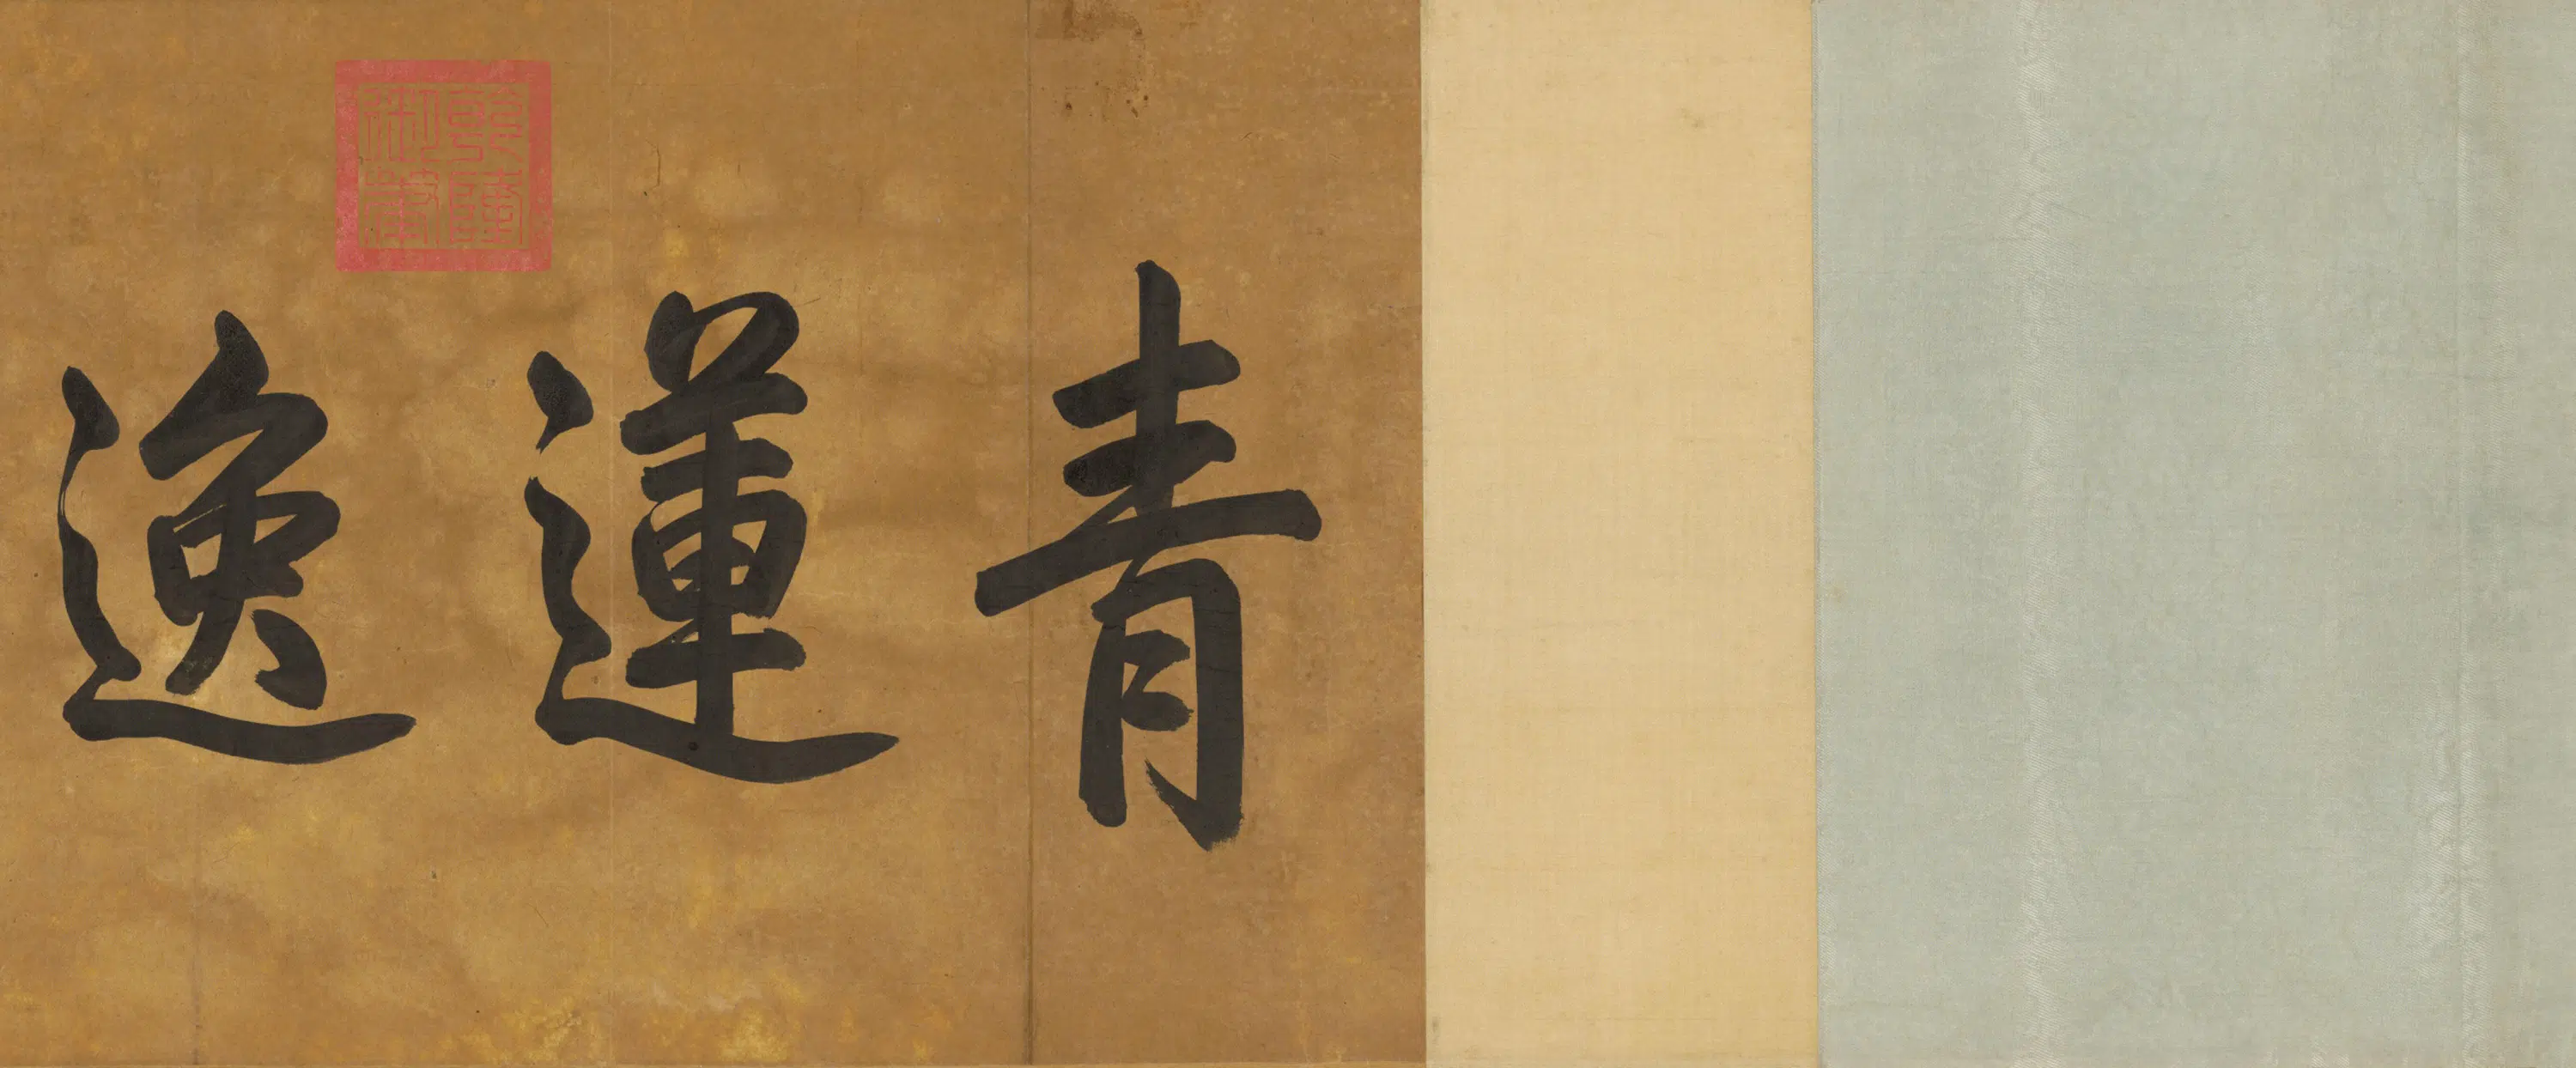 青蓮逸
乾隆
御筆